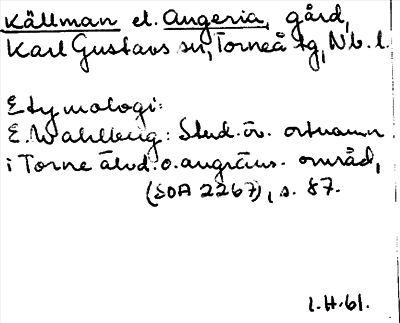 Källman el. Angeria, gård,
Karl Gustavs sn, Torneå tg, Nb. l.
Etymologi:
E. Wahlberg: Stud. öv. ortnamn
i Torne älvd. o. angräns. områd,
(SOA 2267), s. 87.
I.H.61.